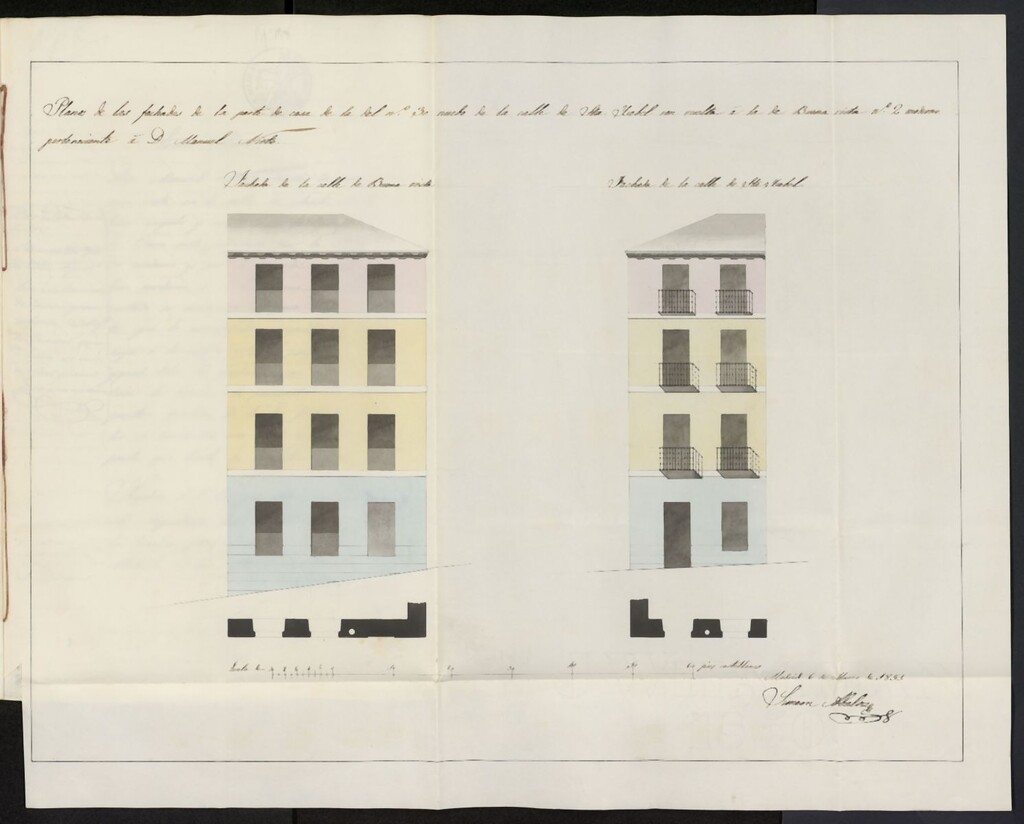 Plano de las fachadas de la parte de casa de la del n.º 30 nuevo de la calle de Sta. Isabel con vuelta á la de Buena vista n.º 2 moderno
perteneciente á D. Manuel Nieto.
Fachada de la calle de Buena vista
Fachada de la calle de Sta. Isabel.
Escala de
60 pies castellanos
Madrid 6 de Marzo de
Simeon